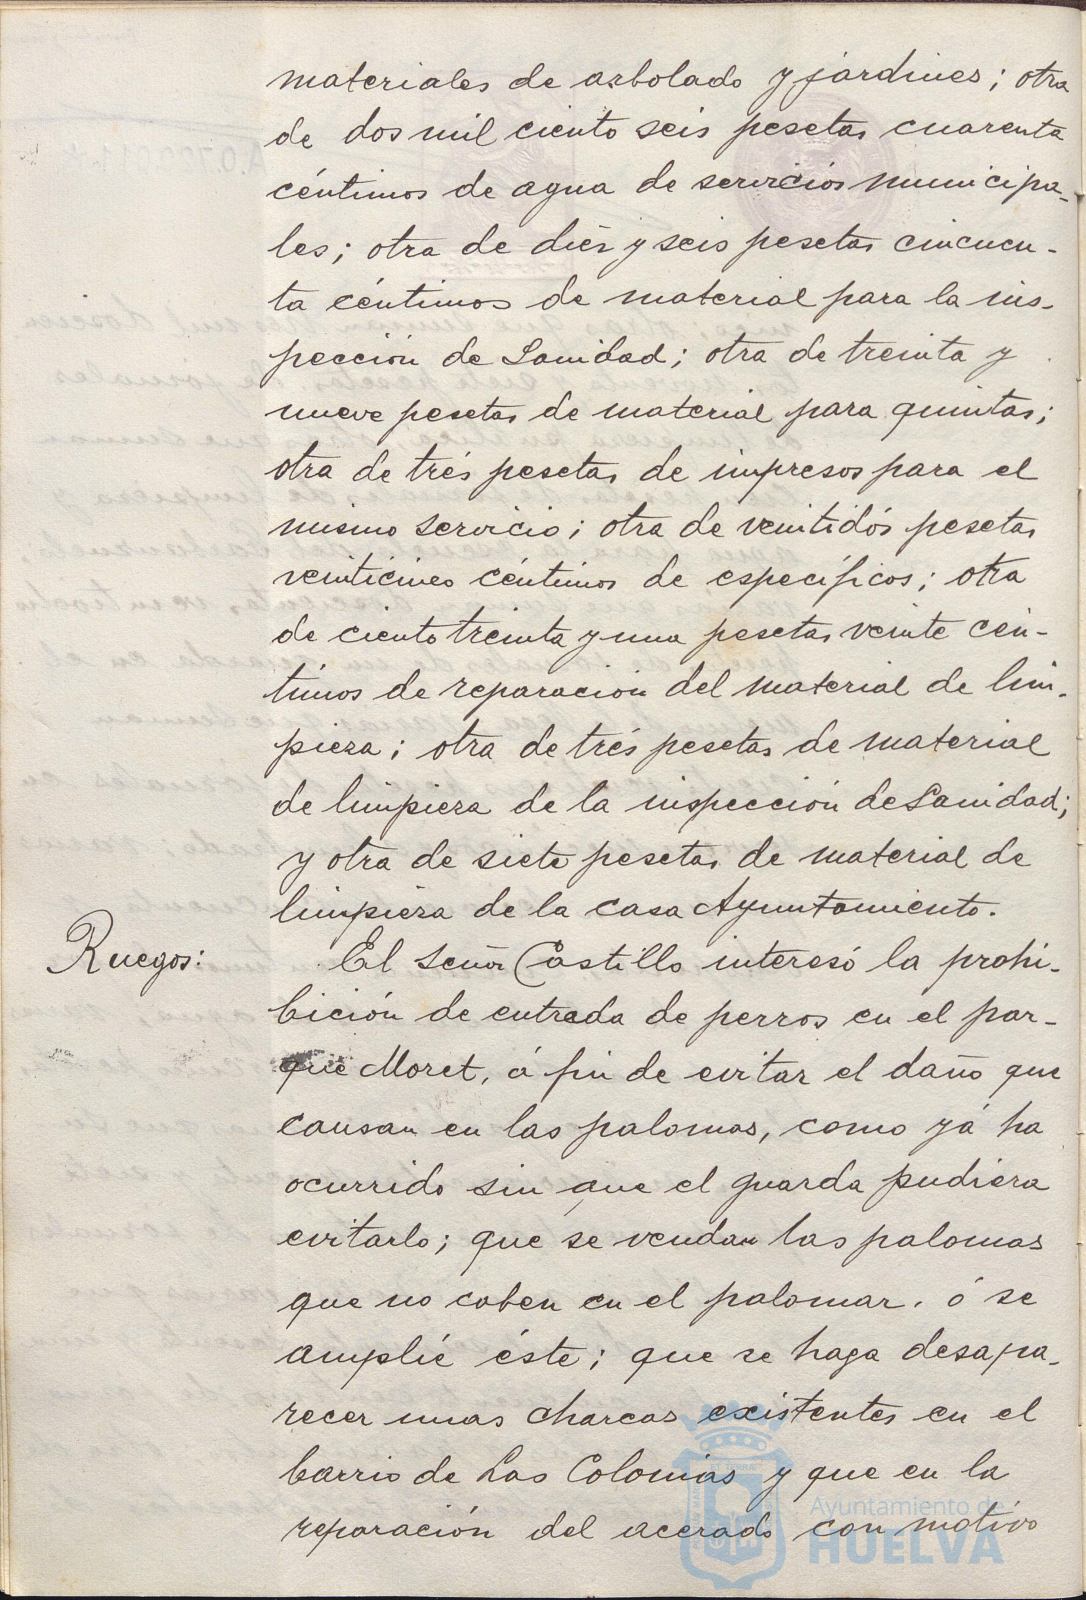 materiales de arbolado y jardines; otra
de dos mil ciento seis pesetas cuarenta
céntimos de agua de servicios municipa-
les; otra de diés y seis pesetas cincuen-
ta céntimos de material para la ins-
pección de Sanidad; otra de treinta y
nueve pesetas de material para quintas;
otra de trés pesetas de impresos para el
mismo servicio; otra de veintidós pesetas
veinticinco céntimos de específicos; otra
de ciento treinta y una pesetas veinte cén-
timos de reparación del material de lim-
pieza; otra de trés pesetas de material
de limpieza de la inspección de Sanidad;
y otra de siete pesetas de material de
limpieza de la casa Ayuntamiento.
Ruegos: El Señor Castillo interesó la prohi-
bición de entrada de perros en el par-
que Moret, á fin de evitar el daño que
causan en las palomas, como yá ha
ocurrido sin que el guarda pudiera
evitarlo; que se vendan las palomas
que no caben en el palomar, ó se
amplíe éste; que se haga desapa-
recer unas charcas existentes en el
barrio de Las Colonias y que en la
reparación del acerado con motivo
Ayuntamiento de
HUELVA